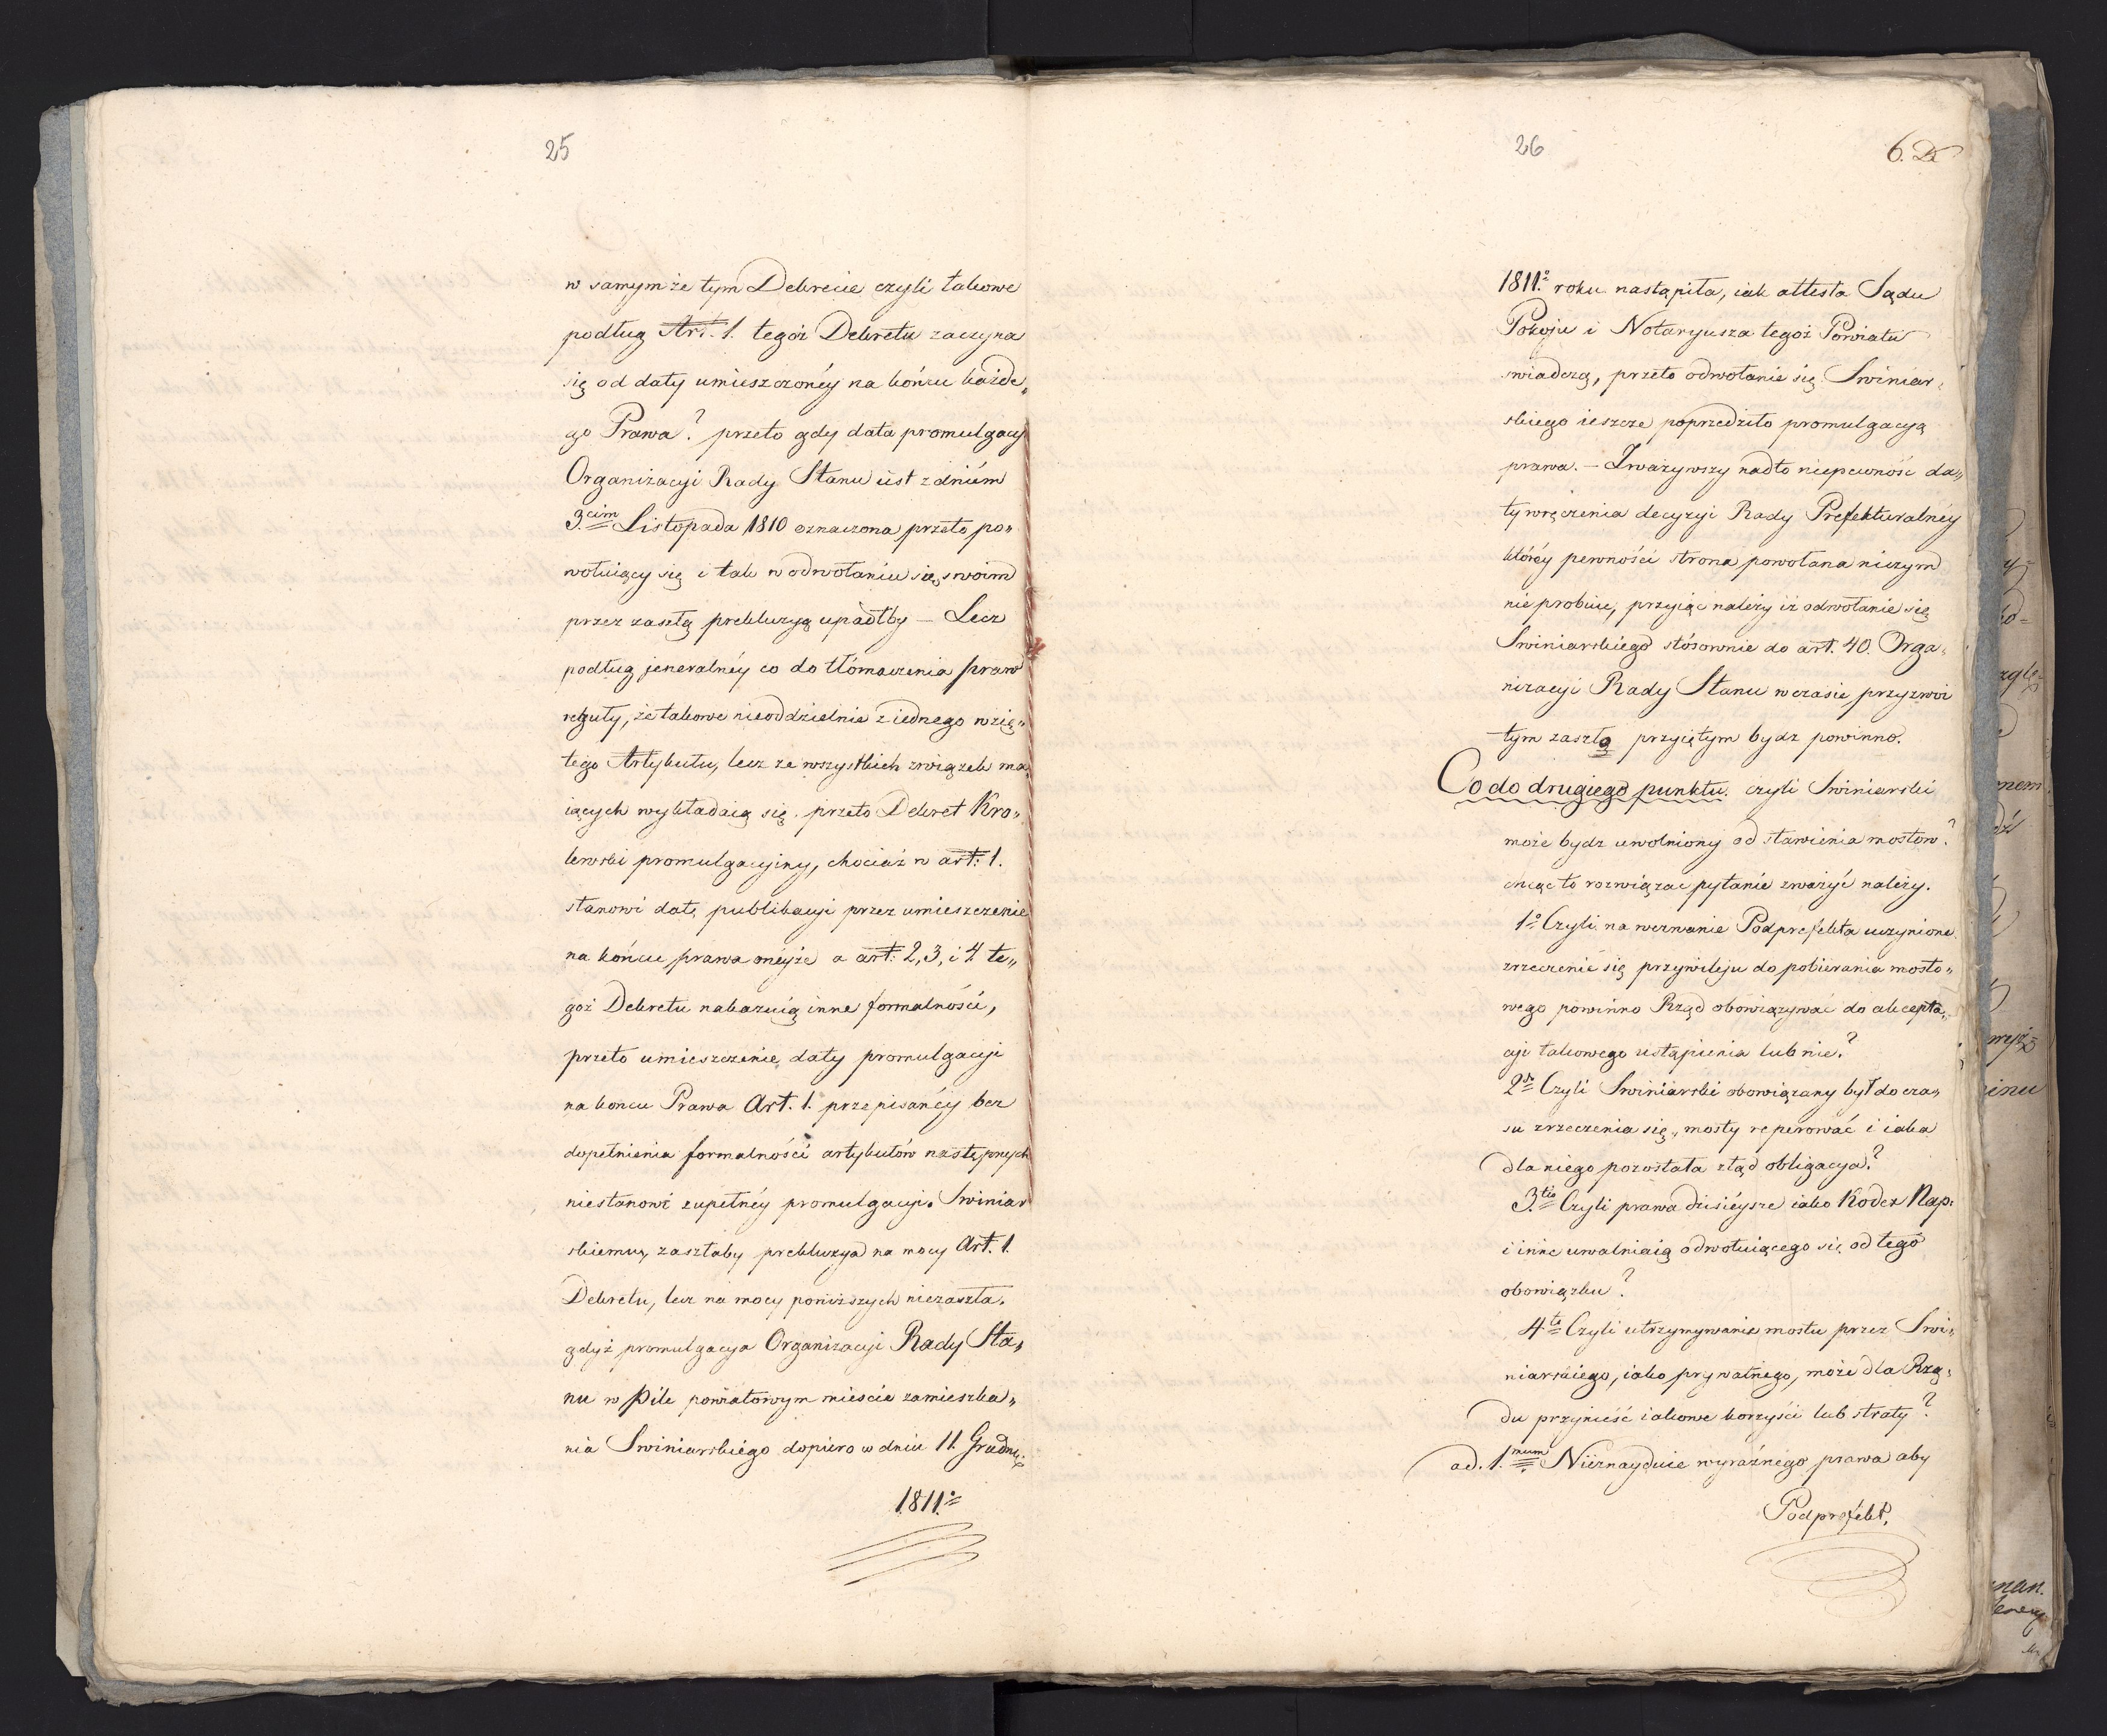 25
w samym że tym Dekrecie czyli takowe
podług Art. 1. tegoż Dekretu zaczyna
się od daty umieszczonéy na końcu każde„
go Prawa? przeto gdy data promulgacyi
Organizacyi Rady Stanu iest z dniém
3.cim Listopada 1810 oznaczona przeto po„
wołuiący się i tak w odwołaniu się swoim
przez zaszłą prekluzyą upadłby — Lecz
podług jeneralnéy co do tłómaczenia praw
reguły, że takowe nieoddzielnie z iednego wzię„
tego Artykułu, lecz ze wszystkich związek ma„
iących wykładaią się. przeto Dekret Kro„
lewski promulgacyiny, chociaż w art: 1.
stanowi datę publikacyi przez umieszczenie
na końcu prawa onéyże a art: 2, 3, i 4 te„
goż Dekretu nakazuią inne formalności,
przeto umieszczenie daty promulgacyi
na koncu Prawa Art. 1. przepisanéy bez
dopełnienia formalności artykułów następnych
niestanowi zupełnéy promulgacyi. Swiniar
skiemu, zaszłaby prekluzya na mocy Art. 1.
Dekretu, lecz na mocy poniższych niezaszła.
gdyż promulgacya Organizacyi Rady Sta„
nu w Pile powiatowym mieście zamieszka„
nia Swiniarskiego dopiero w dniu 11. Grudnia
1811.
26
6. D
1811.° roku nastąpiła, iak attesta Sądu
Pokoju i Notaryusza tegoż Powiatu
swiadczą, przeto odwołanie się Swiniar„
skiego ieszcze poprzedziło promulgacyą
prawa. — Zważywszy nadto niepewność da„
ty wręczenia decyzyi Rady Prefekturalnéy
któréy pewności strona powołana niczym
nie probuie, przyiąc należy iż odwołanie się
Swiniarskiego stósownie do art. 40. Orga„
nizacyi Rady Stanu w czasie przyzwoi
tym zaszłą przyiętym bydz powinno.
Co do drugiego punktu. czyli Swiniarski
może bydz uwolniony od stawienia mostow?
chcąc to rozwiązac pytanie zważyć należy.
1° Czyli na wezwanie Podprefekta uczynione
zrzeczenie się przywileju do pobierania mosto„
wego powinno Rząd obowiązywać do akcepta„
cyi takowego ustąpienia lub nie?
2do Czyli Swiniarski obowiązany był do cza„
su zrzeczenia się, mosty reperować i iaka
dla niego pozostała ztąd obligacya?
3.tio Czyli prawa dzisiéysze iako Kodex Nap:
i inne uwalniaią odwołuiącego się od tego
obowiązku?
4.to Czyli utrzymywanie mostu przez Swi„
niarskiego, iako prywatnego, może dla Rzą„
du przynieść iakowe korzyści lub straty?
ad. 1.mum Nieznayduie wyraźnego prawa aby
Podprefekt.